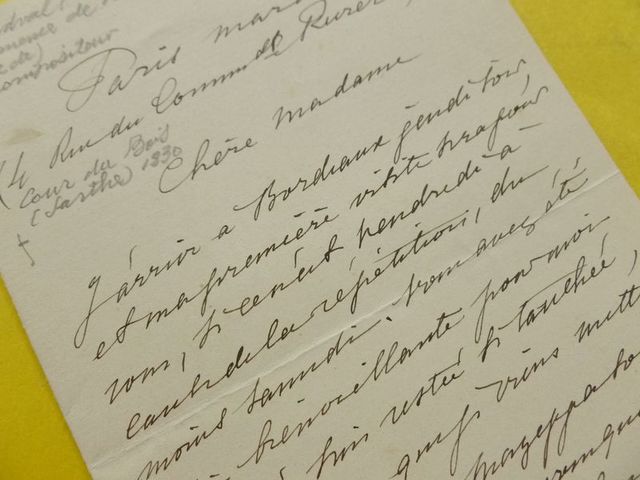 ndval (
mence de
de)
compositeur
Paris mar
4 Rue du Command Rivière
Cour du Bois
(Sarthe) 1830
†
Chère madame
J'arrive à Bordeaux jeudi soir,
et ma première visite sera pour
vous, si ce n'est vendredi à
cause de la répétition, du
moins samedi. vous avez été
si bienveillante pour moi
suis restée si touchée,
que je viens mett
Mazeppa